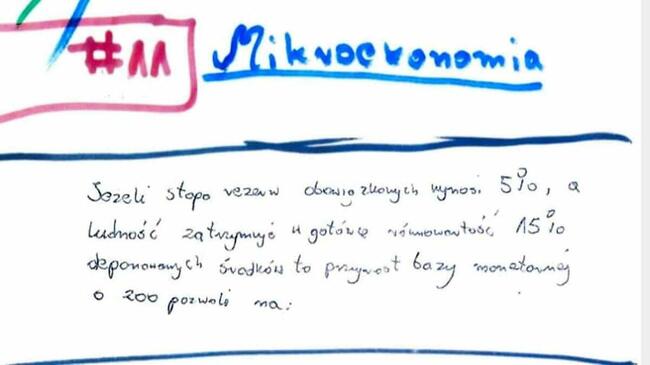 #11 Mikroekonomia
Jeżeli stopa rezerw obowiązkowych wynosi 5%, a
ludność zatrzymuje w gotówce równowartość 15%
deponowanych środków to przyrost bazy monetarnej
o 200 pozwoli na: